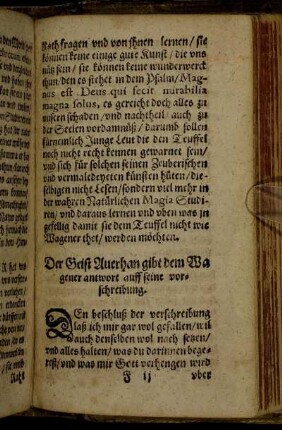 Rath fragen vnd von jhnen lernen / sie
können keine einige gute Kunst / die vns
nütz sein / sie können keine wunderwerck
thun / den es stehet in dem Psalm / Mag-
nus est Deus qui fecit mirabilia
magna solus, es gereicht doch alles zu
vnsern schaden / vnd nachtheil / auch zu
der Seelen verdamnüß / darumb sollen
fürnemlich Junge Leut die den Teuffel
noch nicht recht kennen gewarnet sein /
vnd sich für solchen seinen Bubérischen
vnd vermaledeyetten künsten hüten / die-
selbigen nicht Lesen / sondern viel mehr in
der wahren Natürlichen Magia Studi-
ren / vnd daraus lernen vnd vben was zu
gefellig damit sie dem Teuffel nicht wie
Wagener thet / werden möchten.
Der Geist Auerhan gibt dem Wa
gener antwort auff seine vor-
schreibung.
DEn beschluß der verschreibung
laß ich mir gar wol gefallen / wil
auch denselben wol nach setzen /
vnd alles halten / was du darinnen bege-
rest / vnd was mir Gott verhengen wird
F ij vber